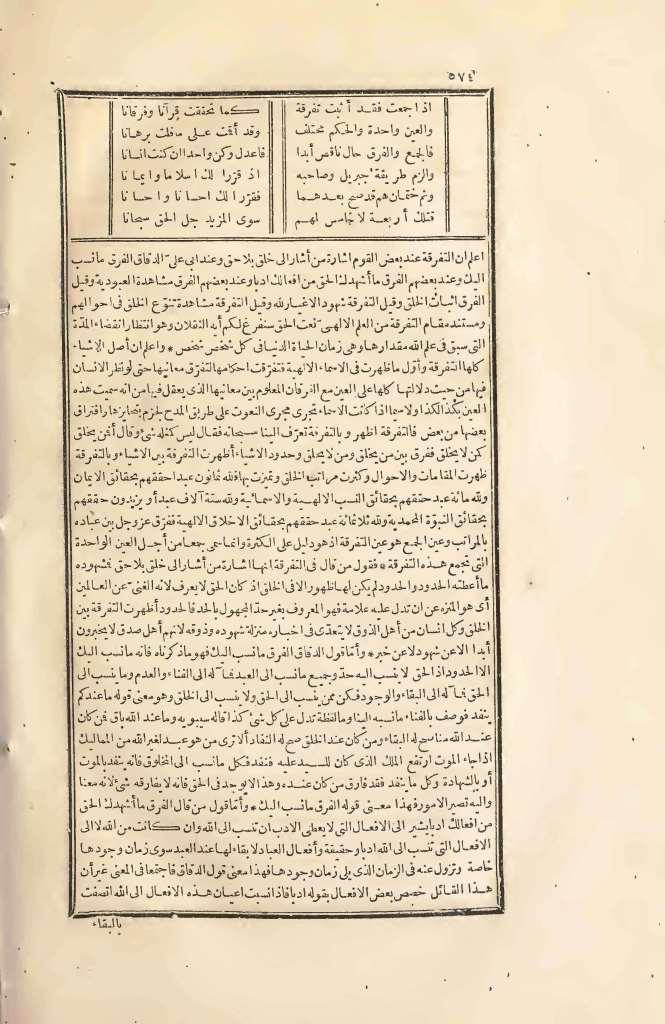 ٥٧٤
اذا جمعت فقد أثبت تفرقة كما تحققت قرآنا وفرقانا
والعين واحدة والحكم مختلف وقد أقمت على ما قلت برهانا
فالجمع والفرق حال ناقص أبدا فاعدل وكن واحدا ان كنت انسانا
والزم طريقة جبريل وصاحبه اذ قررا لك اسلاما وايمانا
وتم ختمان هم قد صح بعدهما فقررا لك احسانا واحسانا
فتلك أربعة لا خامس لهم سوى المزيد جل الحق سبحانا
اعلم ان التفرقة عند بعض القوم اشارة من أشار الى خلق بلا حق وعند ابى على الدقاق الفرق ما نسب
اليك وعند بعضهم الفرق ما أشهدك الحق من افعالك ادبا وعند بعضهم الفرق مشاهدة العبودية وقيل
الفرق اثبات الخلق وقيل التفرقة شهود الاغيار لله وقيل التفرقة مشاهدة تنوّع الخلق فى احوالهم
ومستند مقام التفرقة من العلم الالهىّ نعت الحق سنفرغ لكم أيه الثقلان وهو انتظار انقضاء المدّة
التى سبق فى علم الله مقدارها وهى زمان الحياة الدنيا فى كل شخص شخص * واعلم ان أصل الاشياء
كلها التفرقة وأوّل ما ظهرت فى الاسماء الالهية فتفرّقت احكامها التفرّق معانيها حتى لو نظر الانسان
فيها من حيث دلالتها كلها على العين مع الفرقان المعلوم بين معانيها الذى يعقل فيها من انه سميت هذه
العين بكذا لكذا ولا سيما اذا كانت الاسماء تجرى مجرى النعوت على طريق المدح لجزم بتمايزها وافتراق
بعضها من بعض فالتفرقة اظهر وبالتفرقة تعرّف الينا سبحانه فقال ليس كمثله شئ وقال أفمن يخلق
كمن لا يخلق ففرق بين من يخلق ومن لا يخلق وحدود الاشياء أظهرت التفرقة بين الاشياء وبالتفرقة
ظهرت المقامات والاحوال وكثرت مراتب الخلق وتميزت بها فلله ثمانون عبدا حققهم بحقائق الايمان
ولله مائة عبد حققهم بحقائق النسب الالهية والاسمائية ولله ستة آلاف عبد أو يزيدون حققهم
بحقائق النبوّة المحمدية ولله ثلاثمائة عبد حققهم بحقائق الاخلاق الالهية ففرّق عز وجل بين عباده
بالمراتب وعين الجمع هو عين التفرقة اذ هو دليل على الكثرة وانما سمى جمعا من أجل العين الواحدة
التى تجمع هذه التفرقة * فقول من قال فى التفرقة انها اشارة من أشار الى خلق بلا حق فشهوده
ما أعطته الحدود والحدود لم يكن لها ظهور الا فى الخلق اذ كان الحق لا يعرف لانه الغنىّ عن العالمين
أى هو المنزه عن ان تدل عليه علامة فهو المعروف بغير حدّ المجهول بالحد فالحدود أظهرت التفرقة بين
الخلق وكل انسان من أهل الذوق لا يتعدّى فى اخباره منزلة شهوده وذوقه لانهم أهل صدق لا يخبرون
أبدا الا عن شهود لا عن خبر * وأمّا قول الدقاق الفرق ما نسب اليك فهو ما ذكرناه فانه ما نسب اليك
الا الحدود اذ الحق لا ينسب اليه حدّ وجميع ما نسب الى العبد فما له الى الفناء والعدم وما ينسب الى
الحق فما له الى البقاء والوجود فكن ممن ينسب الى الحق ولا ينسب الى الخلق وهو معنى قوله ما عندكم
ينفد فوصف بالفناء ما نسبه الينا وما لفظة تدل على كل شئ كذا قاله سيبويه وما عند الله باق فمن كان
عند الله منا صح له البقاء ومن كان عند الخلق صح له النفاد ألا ترى من هو عبد لغير الله من المماليك
اذا جاء الموت ارتفع الملك الذى كان للسيد عليه فنفد فكل ما نسب الى المخلوق فانه ينفد بالموت
أو بالشهادة وكل ما ينفد فقد فارق من كان عنده وهذا لا يوجد فى الحق فانه لا يفارقه شئ لانه معنا
واليه تصير الامور فهذا معنى قوله الفرق ما نسب اليك * وأمّا قول من قال الفرق ما أشهدك الحق
من افعالك ادبا يشير الى الافعال التى لا يعطى الادب ان تنسب الى الله وان كانت من الله لا الى
الافعال التى تنسب الى الله ادبا وحقيقة وأفعال العباد لا بقاء لها عند العبد سوى زمان وجودها
خاصة وتزول عنه فى الزمان الذى يلى زمان وجودها فهذا معنى قول الدقاق فاجتمعا فى المعنى غير أن
هذا القائل خصص بعض الافعال بقوله ادبا فاذا نسبت اعيان هذه الافعال الى الله اتصفت
بالبقاء